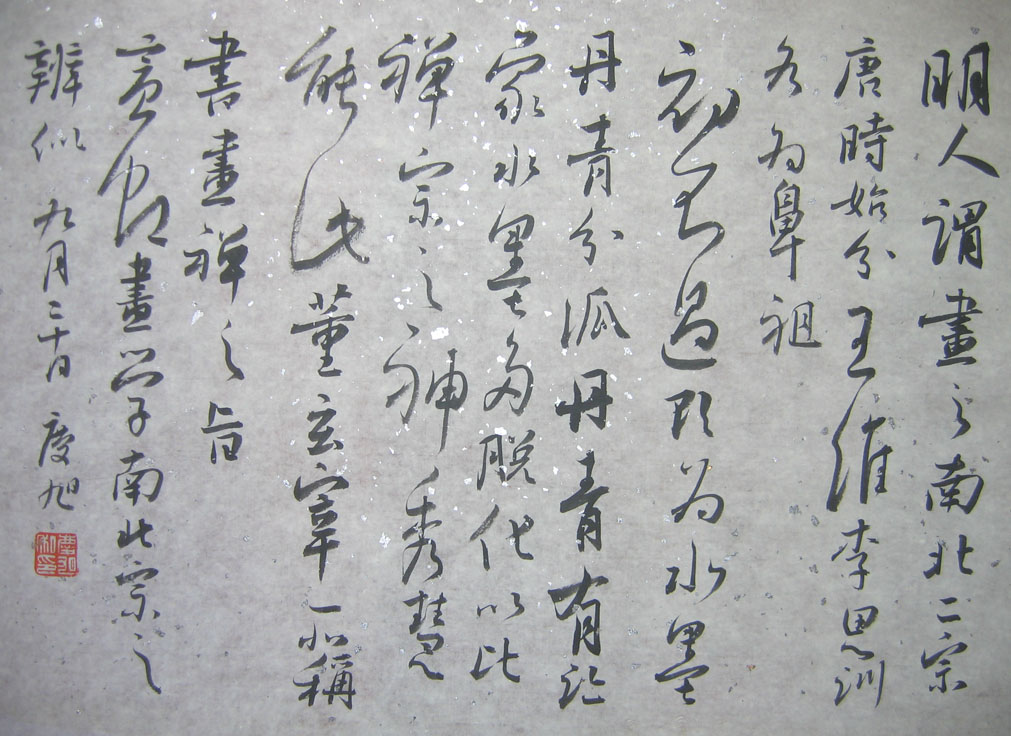 明人謂畫之南北二宗
唐時始分王維李思訓
各為鼻祖
初無過即为水墨
丹青分派丹青有近
家水墨多脱化以比
禪宗之神秀慧
能此董玄宰一禾稱
書畫禅之旨
畫学南北宗之
辨似 九月三十日 慶旭